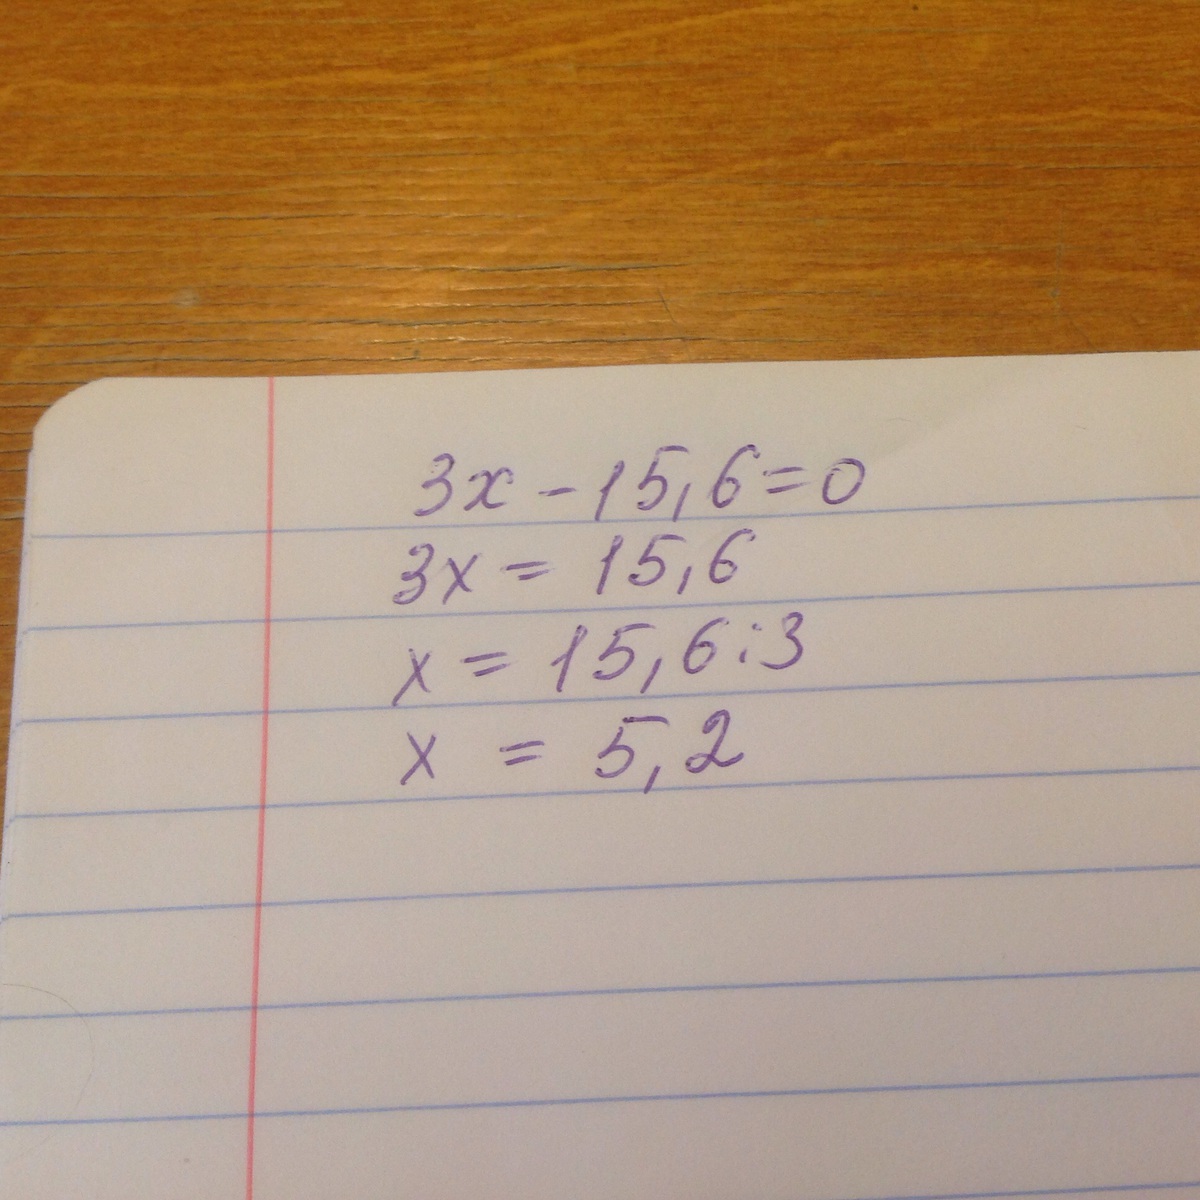 3x - 15,6 = 0
3x = 15,6
x = 15,6 : 3
x = 5,2